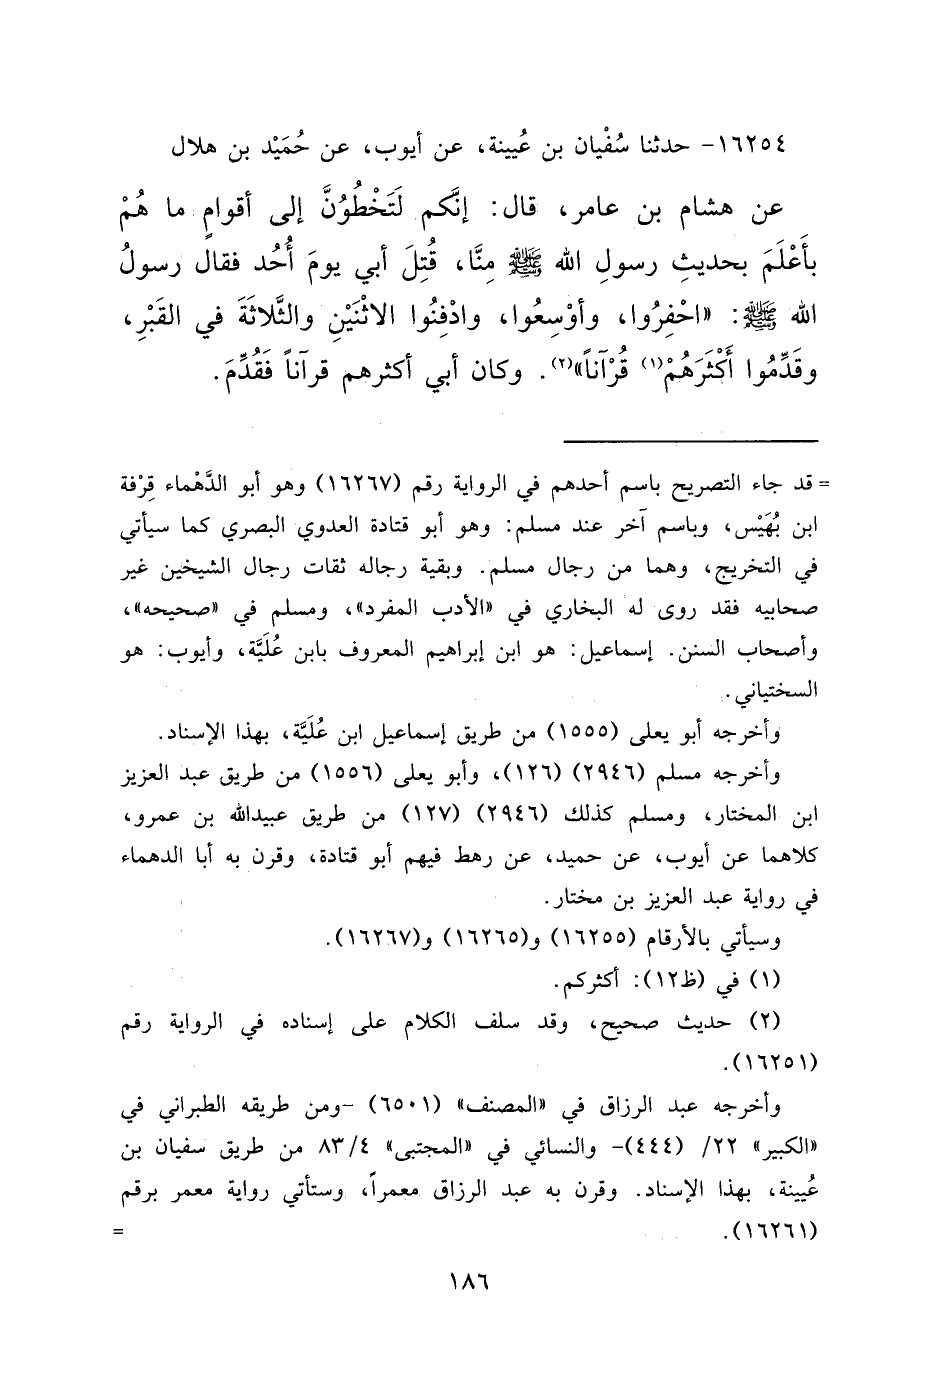 ١٦٢٥٤- حدثنا سُفْيان بن عُيينة، عن أيوب، عن حُمَيْد بن هلال
عن هشام بن عامر، قال: إنَّكم لَتَخْطُوُنَّ إلى أقوامٍ ما هُمْ
بأَعْلَمَ بحديثِ رسولِ الله ﷺ مِنَّا، قُتِلَ أبي يومَ أُحُد فقال رسولُ
الله ﷺ: «احْفِرُوا، وأوْسِعُوا، وادْفِنُوا الاثْنَيْنِ والثَّلاثَةَ في القَبْرِ،
وقَدِّمُوا أَكْثَرَهُمْ(١) قُرْآناً»(٢). وكان أبي أكثرهم قرآناً فَقُدِّمَ.
= قد جاء التصريح باسم أحدهم في الرواية رقم (١٦٢٦٧) وهو أبو الدَّهْماء قِرْفة
ابن بُهَيْس، وباسم آخر عند مسلم: وهو أبو قتادة العدوي البصري كما سيأتي
في التخريج، وهما من رجال مسلم. وبقية رجاله ثقات رجال الشيخين غير
صحابيه فقد روى له البخاري في «الأدب المفرد»، ومسلم في «صحيحه»،
وأصحاب السنن. إسماعيل: هو ابن إبراهيم المعروف بابن عُلَيَّة، وأيوب: هو
السختياني.
وأخرجه أبو يعلى (١٥٥٥) من طريق إسماعيل ابن عُلَيَّة، بهذا الإسناد.
وأخرجه مسلم (٢٩٤٦) (١٢٦)، وأبو يعلى (١٥٥٦) من طريق عبد العزيز
ابن المختار، ومسلم كذلك (٢٩٤٦) (١٢٧) من طريق عبيدالله بن عمرو،
كلاهما عن أيوب، عن حميد، عن رهط فيهم أبو قتادة، وقرن به أبا الدهماء
في رواية عبد العزيز بن مختار.
وسيأتي بالأرقام (١٦٢٥٥) و(١٦٢٦٥) و(١٦٢٦٧).
(١) في (ظ١٢): أكثركم.
(٢) حديث صحيح، وقد سلف الكلام على إسناده في الرواية رقم
(١٦٢٥١).
وأخرجه عبد الرزاق في «المصنف» (٦٥٠١) -ومن طريقه الطبراني في
«الكبير» ٢٢/ (٤٤٤)- والنسائي في «المجتبى» ٨٣/٤ من طريق سفيان بن
عُيينة، بهذا الإسناد. وقرن به عبد الرزاق معمراً، وستأتي رواية معمر برقم
(١٦٢٦١). =
١٨٦